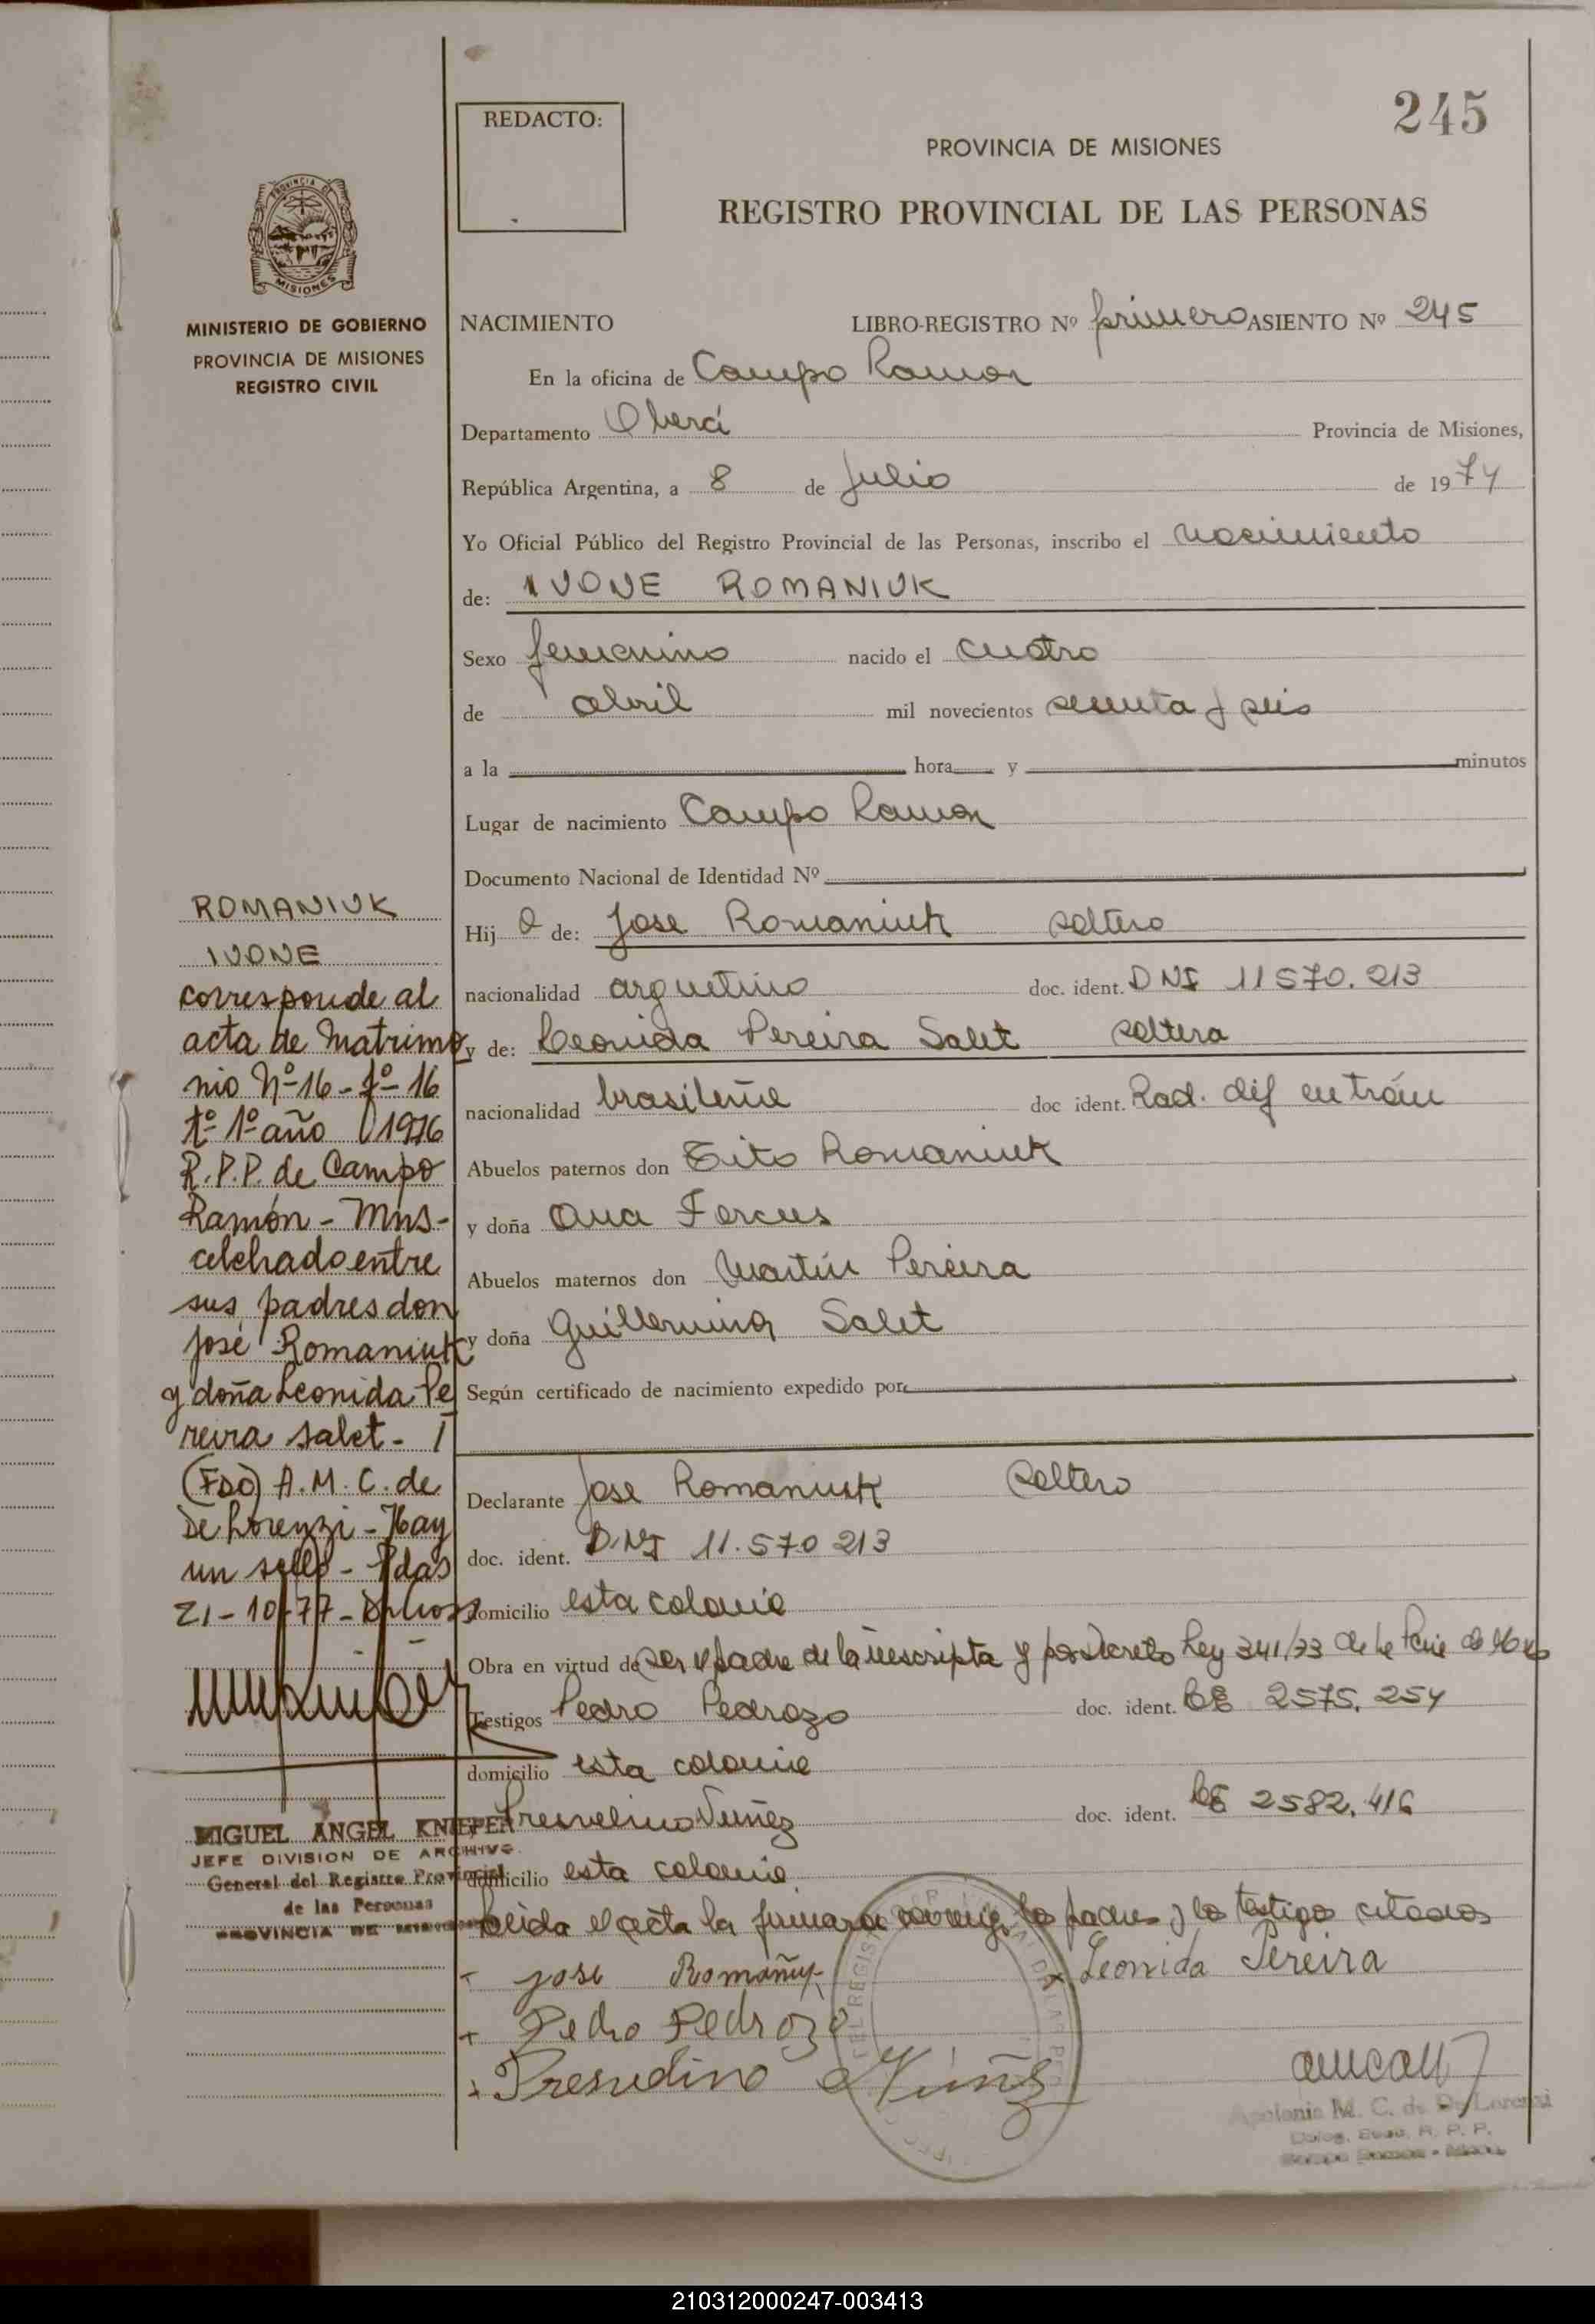 245
REDACTO:
PROVINCIA DE MISIONES
REGISTRO PROVINCIAL DE LAS PERSONAS
MISIONES
MINISTERIO DE GOBIERNO
PROVINCIA DE MISIONES
REGISTRO CIVIL
NACIMIENTO LIBRO-REGISTRO Nº primero ASIENTO Nº 245
En la oficina de Campo Ramon
Departamento Oberá Provincia de Misiones,
República Argentina, a 8 de Julio de 1974
Yo Oficial Público del Registro Provincial de las Personas, inscribo el nacimiento
de: IVONE ROMANIUK
Sexo femenino nacido el cuatro
de abril mil novecientos sesenta y seis
a la hora y minutos
Lugar de nacimiento Campo Ramon
Documento Nacional de Identidad Nº
Hij a de: Jose Romaniuk soltero
nacionalidad argentino doc. ident. DNI 11 570.213
y de: Leonida Pereira Salet soltera
nacionalidad brasileña doc ident. Rad. def en trám
Abuelos paternos don Tito Romaniuk
y doña Ana Forcus
Abuelos maternos don Martin Pereira
y doña Guillermina Salet
Según certificado de nacimiento expedido por
Declarante Jose Romaniuk Soltero
doc. ident. D.N.I 11.570 213
domicilio esta colonia
Obra en virtud de ser el padre de la inscripta y por Decreto Ley 341/73 de la
Testigos Pedro Pedrozo doc. ident. CE 2575.254
domicilio esta colonia
Nuñez doc. ident. CE 2582.416
domicilio esta colonia
Leida el acta la firmaron conmigo los padres y los testigos citados
Jose Leonida Pereira
Pedro Pedrozo
Presvedino Núñez
Apolonia M. C. de De Lorenzi
R. P. P.
ROMANIUK
IVONE
corresponde al
acta de Matrimo
nio Nº 16 - Fº - 16
tº 1º año 1976
R.P.P. de Campo
Ramón - Mns -
celebrado entre
sus padres don
José Romaniuk
y doña Leonida Pe
reira Salet -
(Fdo) A.M.C. de
De Lorenzi - Hay
un sello - Pdas
21-10-77 -
MIGUEL ANGEL KNIEPER
JEFE DIVISION DE ARCHIVO
General del Registro Provincial
de las Personas
PROVINCIA DE MISIONES
210312000247-003413